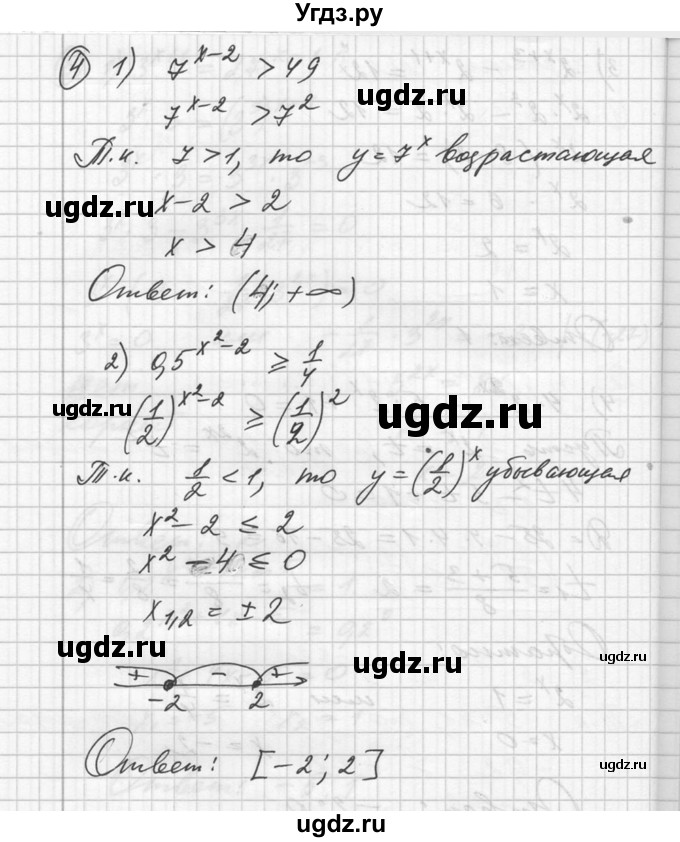 Угдз.ру
④ 1) 7^{x-2} > 49
7^{x-2} > 7^2
ugdz.ru
Т.к. 7 > 1, то y = 7^x возрастающая
ugdz.ru
x - 2 > 2
ugdz.ru
x > 4
Ответ: (4; +∞)
2) 0,5^{x^2-2} ≥ 1/4
ugdz.ru
(1/2)^{x^2-2} ≥ (1/2)^2
ugdz.ru
Т.к. 1/2 < 1, то y = (1/2)^x убывающая
x^2 - 2 ≤ 2
x^2 - 4 ≤ 0
x_{1,2} = ± 2
ugdz.ru ugdz.ru ugdz.ru
+ - +
-2 2
Ответ: [-2; 2]
ugdz.ru